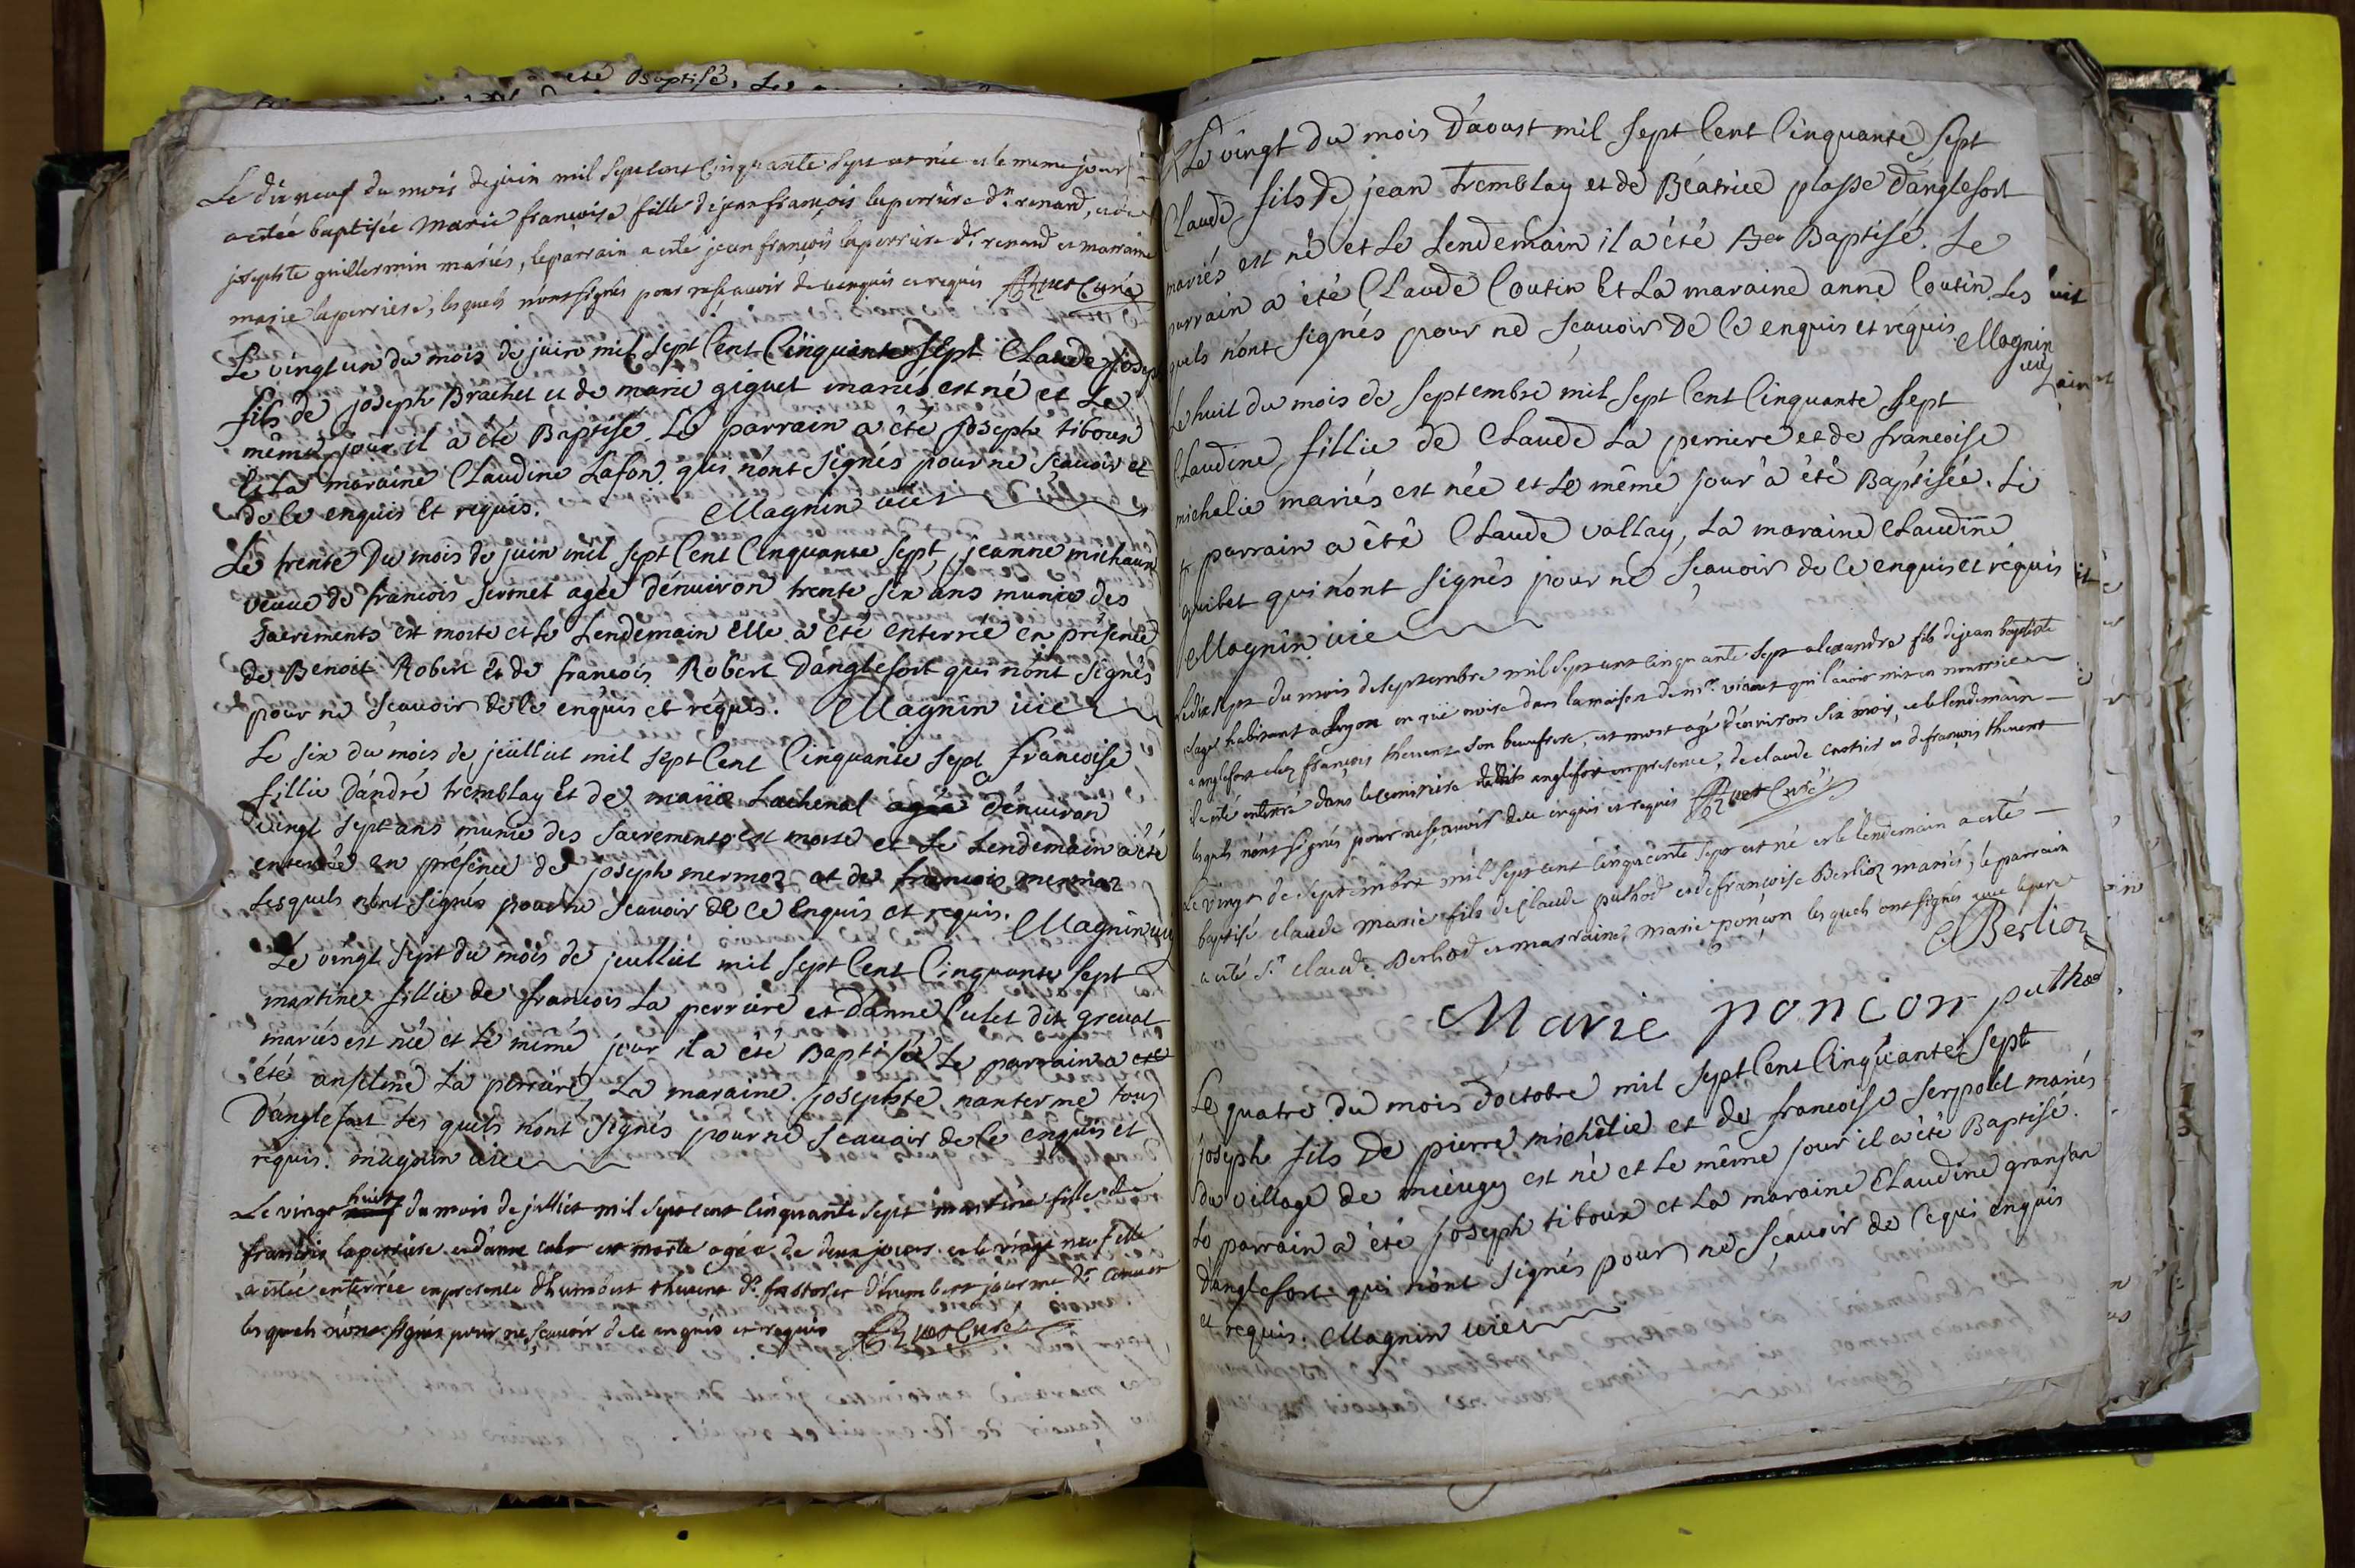 été Baptisé, Le
Le dixneuf du mois de juin mil sept cent cinquante sept est née et le meme jour
a estée baptisée marie françoise fille de jean françois laperriere dt. renard, et de
josephte guillermin mariés, le parrain a esté jean françois laperriere dt. renard et marraine
marie laperriere, lesquels n'ont signés pour ne sçavoir de ce enquis et requis curé
Le vingt un du mois de juin mil sept Cent Cinquante sept Claude joseph
fils de joseph Brachet et de marie giguet mariés est né et Le
même jour il a été Baptisé. Le parrain a été joseph tiboux
Et La maraine Claudine Lafon. qui n'ont signés pour ne sçavoir et
de Ce enquis Et requis. Magnin vic
Le trente Du mois de juin mil sept Cent Cinquante sept, jeanne michaud
veuve de francois seronet agée d'enuiron trente six ans munie des
sacrements est morte et Le Lendemain elle a été enterrée en présence
de Benoit Robert Et de francois Robert d'anglefort qui n'ont signés
pour ne sçavoir de Ce enquis et requis. Magnin vic
Le six du mois de jeuillet mil sept Cent Cinquante sept francoise
fillie d'andré tremblay Et de marie Lachenal agée d'enuiron
vingt sept ans munie des sacrements est morte et Le Lendemain a été
enterrée en présence de joseph mermoz et de francois mermoz
Lesquels n'ont signés pour ne sçavoir de ce Enquis et requis. Magnin vic
Le vingt sept du mois de jeuillet mil sept Cent Cinquante sept
martine fillie de francois La perriere et d'anne Culet dit greuat
mariés est née et Le même jour il a été Baptisée Le parrain a esté
été anselme La perriere, La maraine josephte nanterme tous
D'anglefort Les quels n'ont signés pour ne sçavoir de Ce enquis et
requis. magnin vic
Le vingt huit du mois de jullict mil sept cent cinquante sept martine fille de
francois laperriere et d'anne culet est morte agée de deux jours et le vingt neuf elle
a estée enterrée en presence d'humbert thevent dt. et d'humbert
lesquels n'ont signés pour ne sçavoir de ce enquis et requis curé
Le vingt du mois D'aoust mil sept Cent Cinquante sept
Claude fils De jean tremblay et de Béatrice plasse d'anglefort
mariés est né et Le Lendemain il a été Baptisé. Le
parrain a été Claude Coutin Et La maraine anne Coutin, Les
quels n'ont signés pour ne sçavoir De Ce enquis et requis. Magnin
vic
Le huit du mois de septembre mil sept Cent Cinquante sept
Claudine fillie de Claude La perriere et de francoise
michalie mariés est née et Le même jour a été Baptisée. Le
parrain a été Claude vallay, La maraine Claudine
quibet qui n'ont signés pour ne sçavoir de Ce enquis et réquis
Magnin vic
Le dix sept du mois de septembre mil sept cent cinquante sept alexandre fils de jean baptiste
habitant a Lyon en rüe noire dans la maison de mr. vicant qui l'avoit mis en nourrice
a anglefort chez françois thevent son beaufrere, est mort agé d'environ six mois, et le lendemain
il a esté enterré dans le cimitiere dudit anglefort en presence, de claude cartier et de françois thevent
lesquels n'ont signés pour ne sçavoir de ce enquis et requis curé
Le vingt de septembre mil sept cent cinquante sept est né et le lendemain a esté
baptisé claude marie fils de Claude puthod et de francoise Berlioz mariés; le parrain
a esté Sr. claude Berliod et marraine, marie ponçon lesquels ont signés avec le pere
C Berlioz
Marie poncon puthod
Le quatre du mois d'octobre mil sept Cent Cinquante sept
joseph fils De pierre michêlie et de francoise serpolet mariés
du village de mieugy est né et Le même jour il a été Baptisé.
Le parrain a été joseph tiboux et La maraine Claudine granjan
d'anglefort qui n'ont signés pour ne sçavoir de Ce qui enquis
et requis. Magnin vic